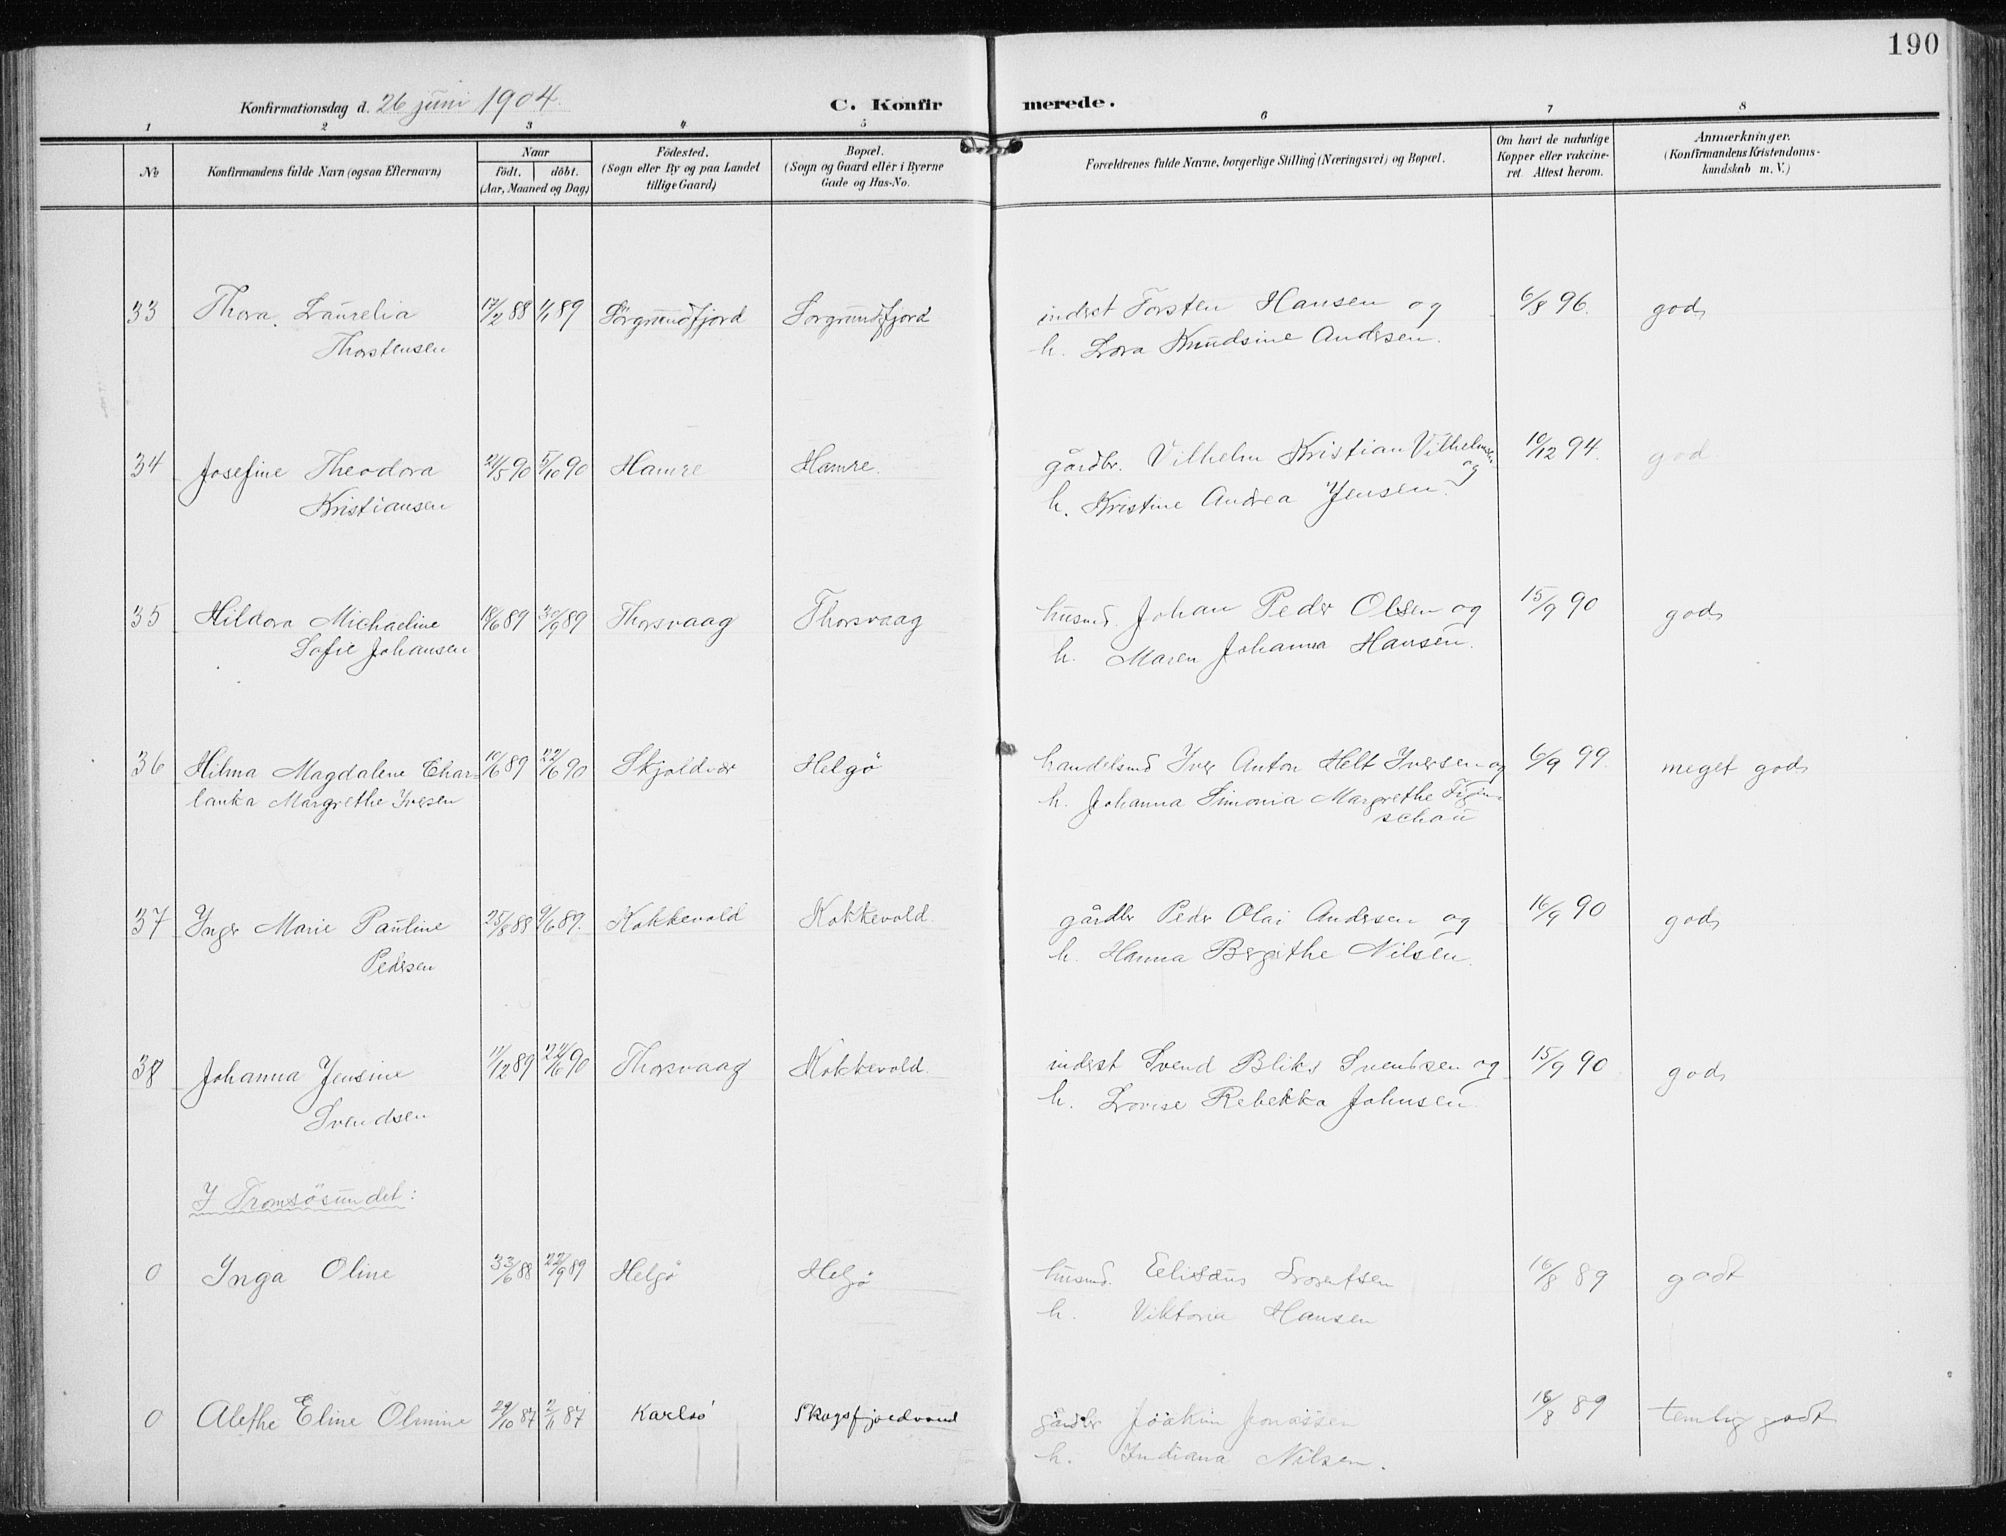 190
Konfirmationsdag d. 26 juni 1904. C. Konfirmerede.
1 2 3 4 5 6 7 8
No
Konfirmandens fulde Navn (ogsaa Efternavn)
Naar
födt. döbt.
(Aar, Maaned og Dag)
Födested.
(Sogn eller By og paa Landet
tillige Gaard)
Bopæl.
(Sogn og Gaard eller i Byerne
Gade og Hus-No.
Forældrenes fulde Navne, borgerlige Stilling (Næringsvei) og Bopæl.
Om havt de naturlige
Kopper eller vakcine-
ret. Attest herom.
Anmærkninger.
(Konfirmandens Kristendoms-
kundskab m. V.)
33 Thora Laurelia 17/2 88 1/1 89 Sörgrundfjord Sorgrundfjord inderst Torsten Hansen og 6/8 96. god
Thorstensen h. Lora Knudsine Andersen.
34 Josefine Theodora 21/5 90 5/10 90 Hamre Hamre. gårdbr. Vilhelm Kristian Vilhelmsen 10/12 94. god
og
Kristiansen h. Kristine Andrea Jensen.
35 Hildora Michaeline 18/6 89 30/9 89 Thorsvaag Thorsvaag husmd. Johan Peder Olsen og 15/9 90 god
Sofie Johansen h. Maren Johanna Hansen.
36 Hilma Magdalene Char- 10/6 89 22/6 90 Skjoldvær Helgö handelsmd Iver Anton Helt Iversen og 6/9 99. meget god
lanka Margrethe Iversen h. Johanna Simonia Margrethe Figen-
schau
37 Inger Marie Pauline 25/8 88 9/6 89. Kokkevold Kokkevold. gårdbr Peder Olai Andersen og 16/9 90 god
Pedersen h. Hanna Bergithe Nilsen.
38 Johanna Jensine 11/12 89 22/6 90 Thorsvaag Kokkevold. inderst Svend Bliks Svendsen og 15/9 90 god
Svendsen h. Lovise Rebekka Johnsen.
I Tromsösundet:
0 Inga Oline 22/9 89 Helgö Helgö husmd. Elisæus Lorentsen 16/8 89 godt
h. Viktoria Hansen
0 Alethe Eline Olmine 29/10 87 87 Karlsö Skogsfjordvand gårdbr Joakim Jonassen 16/8 89 temlig godt
h. Indiana Nilsen.